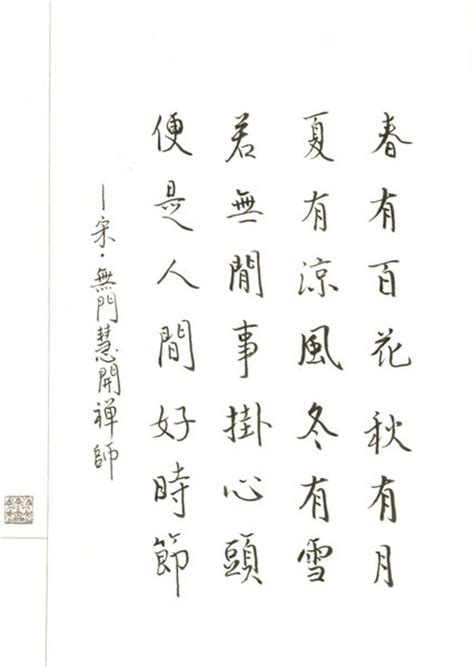 春有百花秋有月
夏有涼風冬有雪
若無閒事掛心頭
便是人間好時節
—宋·無門慧開禪師